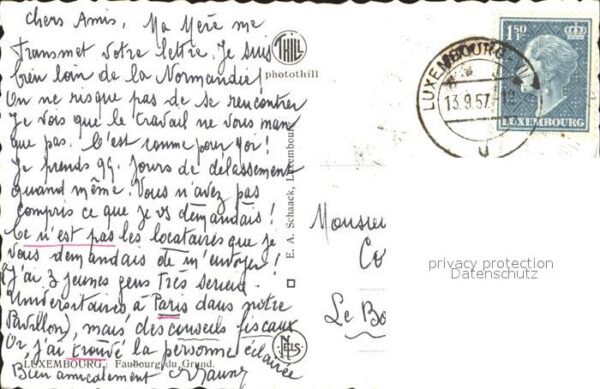 Chers Amis, Ma Mère me
transmet votre lettre. Je suis
bien loin de la Normandie!
On ne risque pas de se rencontrer
Je vois que le travail ne vous man
que pas. C'est comme pour moi!
Je prends 99. jours de délassement
quand même. Vous n'avez pas
compris ce que je vs demandais!
Ce n'est pas les locataires que je
vous demandais de m'envoyer!
(J'ai 3 jeunes gens très sérieux
Universitaires à Paris dans notre
Pavillon), mais des conseils fiscaux
Or, j'ai trouvé la personne éclairée
Bien amicalement
LUXEMBOURG Faubourg du Grund.
THILL
photothill
E. A. Schaack, Luxembourg
NELS
LUXEMBOURG-VI
13.9.57
1.50
F
LUXEMBOURG
Monsieur
Co
Le Bo
privacy protection
Datenschutz